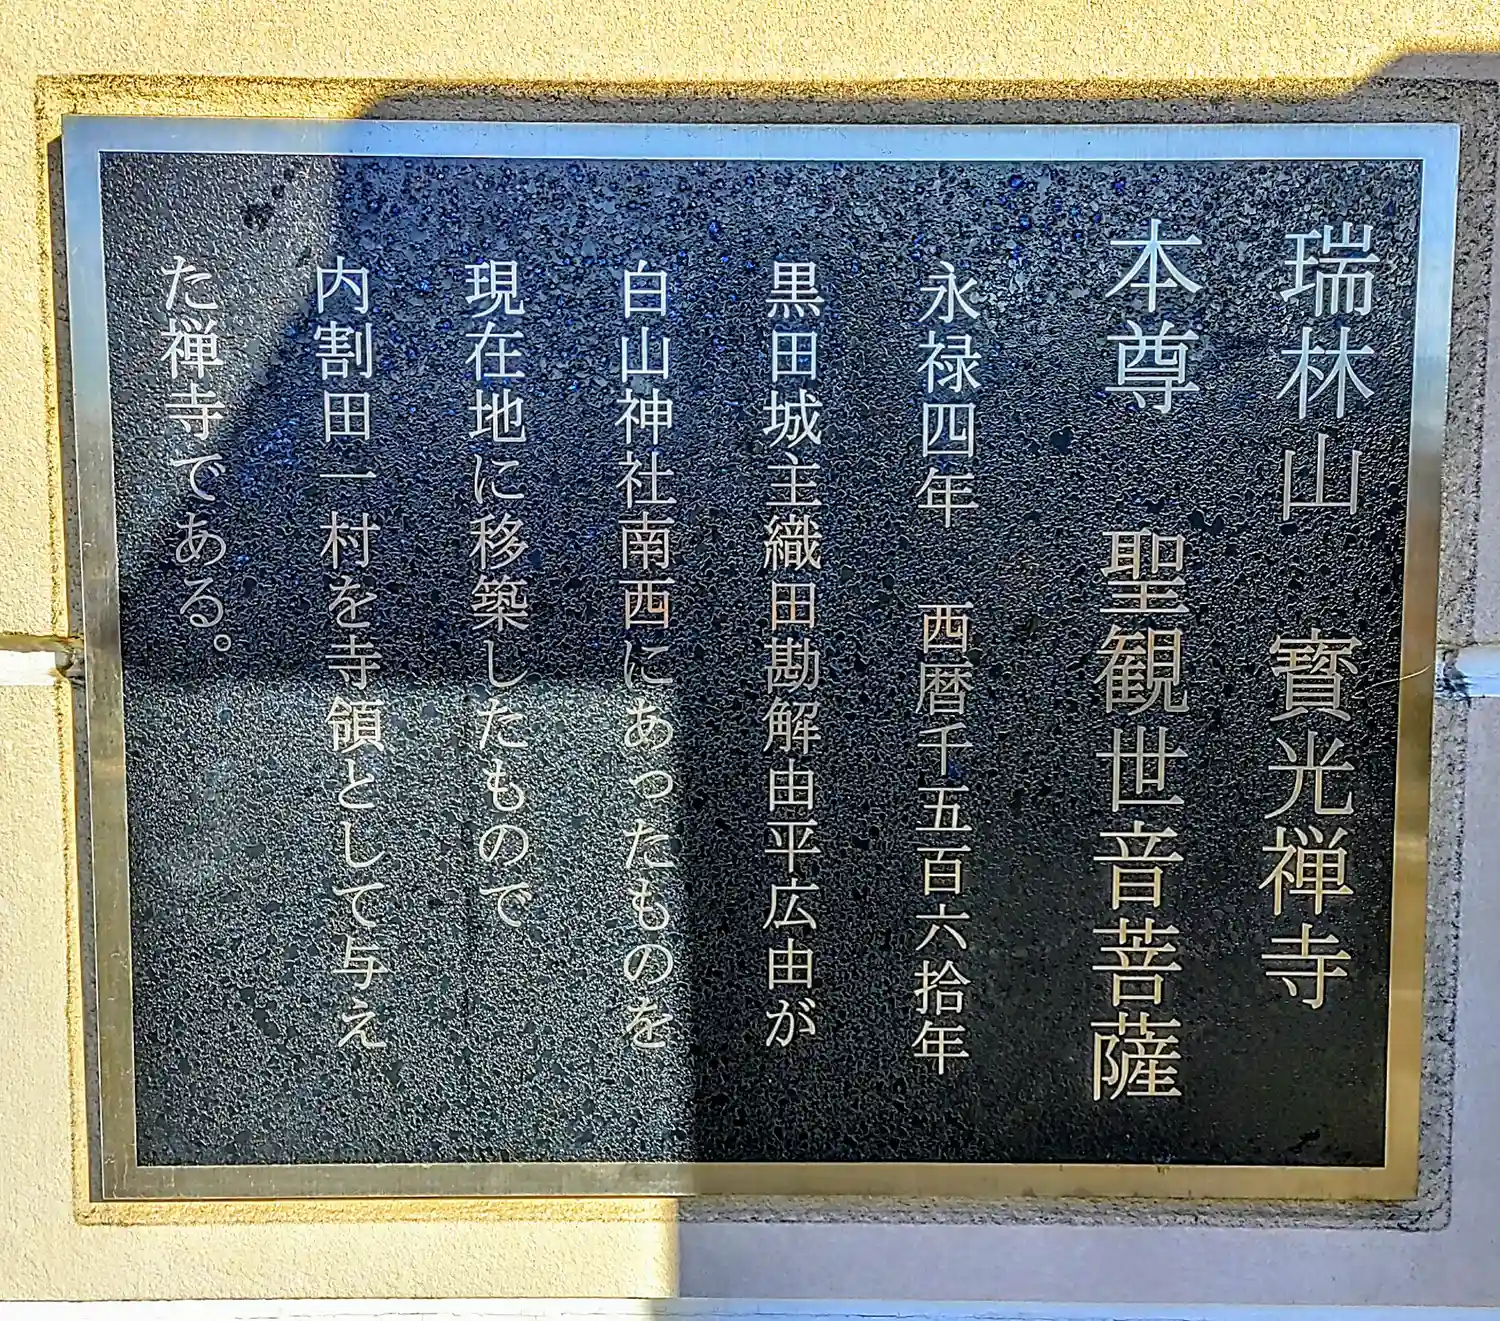 瑞林山 寳光禅寺
本尊 聖観世音菩薩
永禄四年 西暦千五百六拾年
黒田城主織田勘解由平広由が
白山神社南西にあったものを
現在地に移築したもので
内割田一村を寺領として与え
た禅寺である。